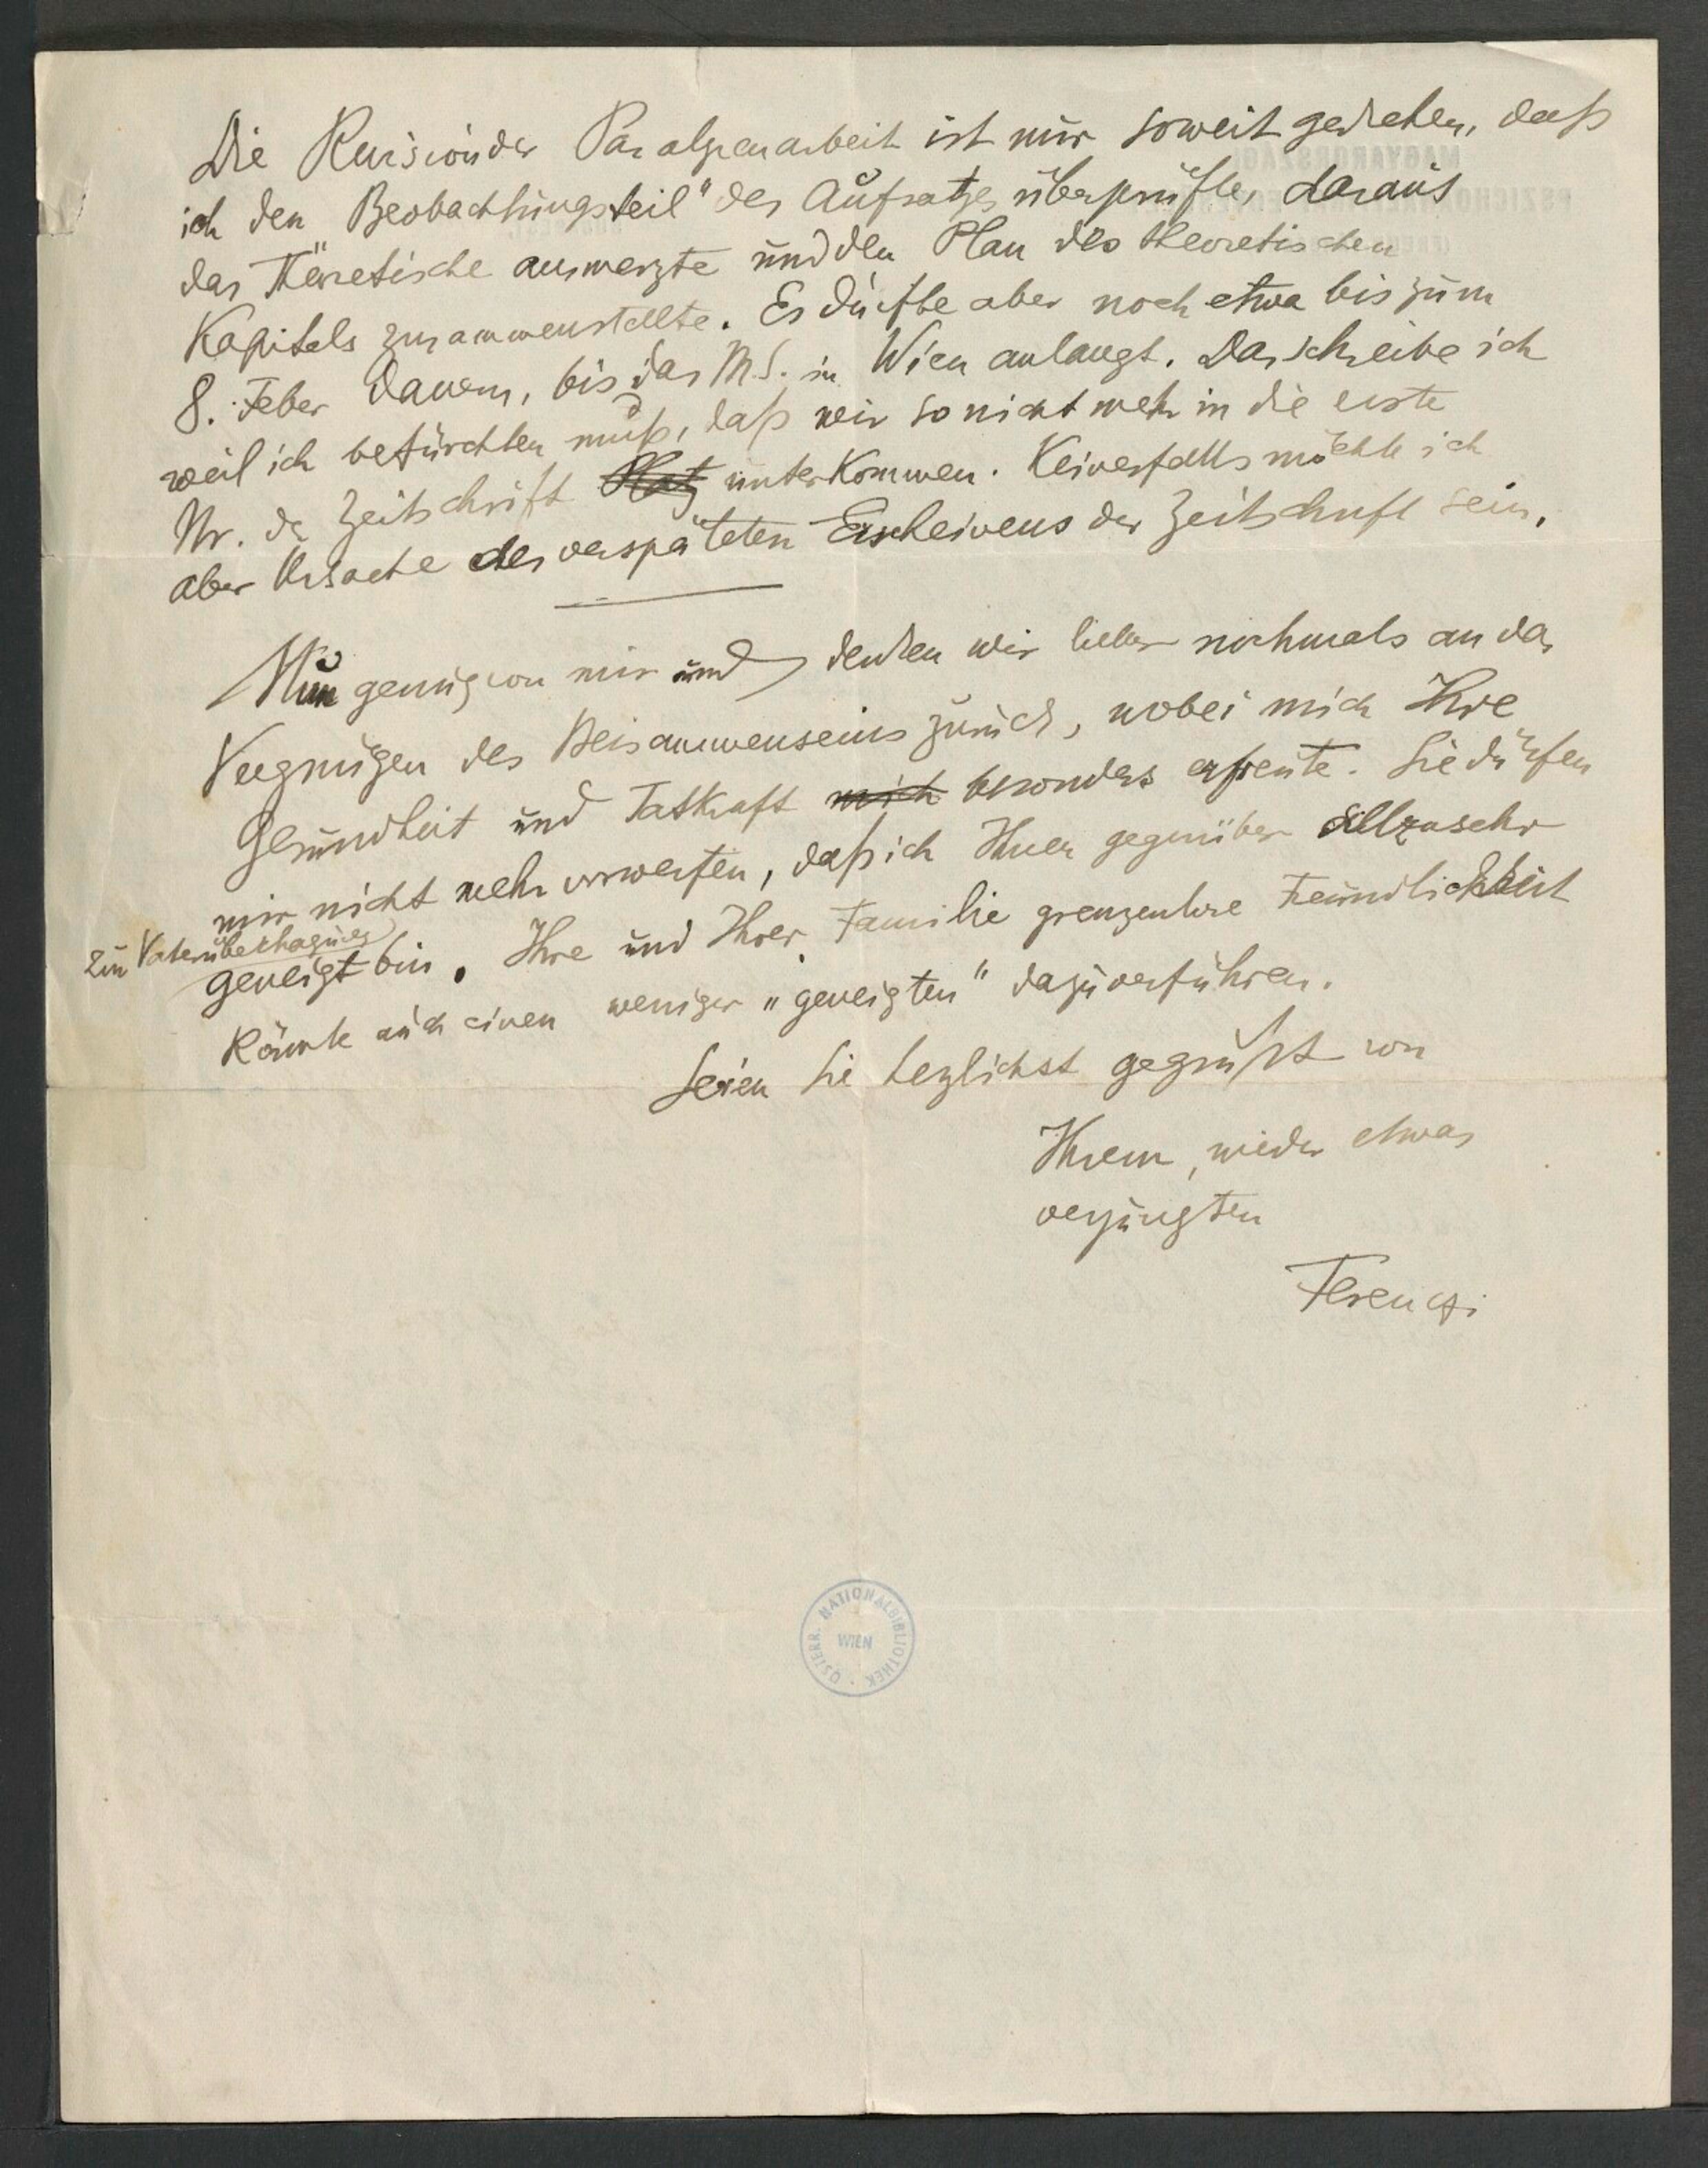 Die Revision der Paralysenarbeit ist nur soweit gediehen, daß
ich den „Beobachtungsteil“ des Aufsatzes überprüfte, daraus
das Theoretische ausmerzte und den Plan des theoretischen
Kapitels zusammenstellte. Es dürfte aber noch etwa bis zum
8. Feber dauern, bis das M.S. in Wien anlangt. Das schreibe ich
weil ich befürchten muß, daß wir so nicht mehr in die erste
Nr. der Zeitschrift Platz unterkommen. Keinesfalls möchte ich
aber Ursache des verspäteten Erscheinens der Zeitschrift sein.
Nun genug von mir und denken wir lieber nochmals an das
Vergnügen des Beisammenseins zurück, wobei mich Ihre
Gesundheit und Tatkraft mich besonders erfreute. Sie dürfen
mir nicht mehr vorwerfen, daß ich Ihnen gegenüber allzusehr
zur Vaterübertragung
geneigt bin. Ihre und Ihrer Familie grenzenlose Freundlichkeit
könnte auch einen weniger „geneigten“ dazu verführen.
Seien Sie herzlichst gegrüßt von
Ihrem, wieder etwas
verjüngten
Ferenczi
ÖSTERR. NATIONALBIBLIOTHEK
WIEN